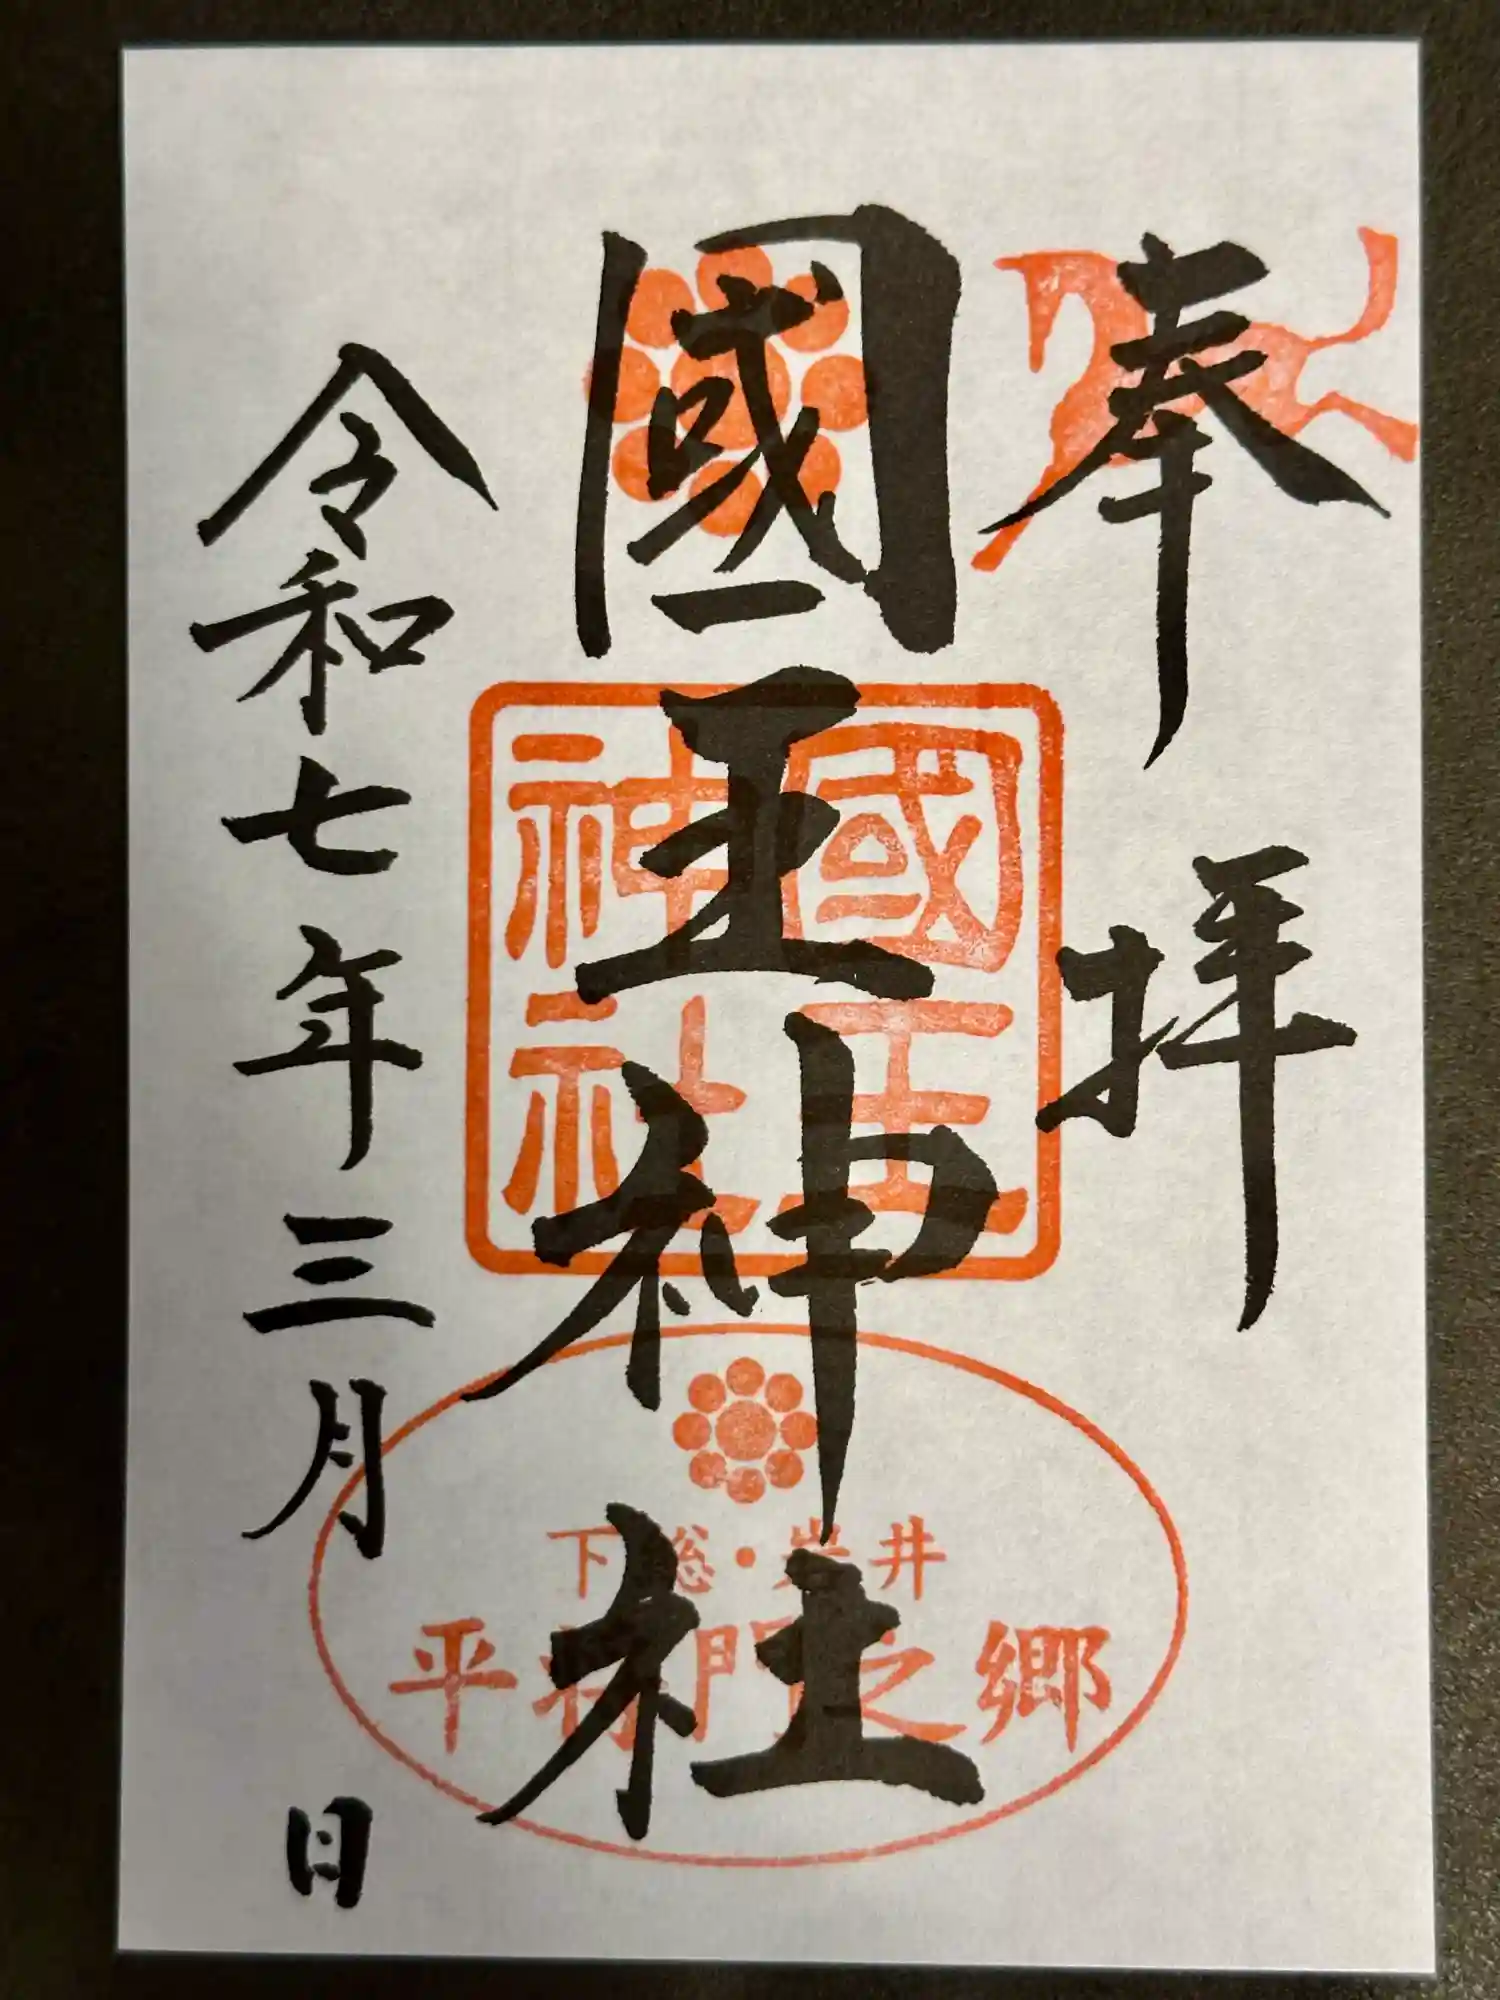 奉拝
國王神社
國王
神社
下総・岩井
平将門之郷
令和七年三月 日